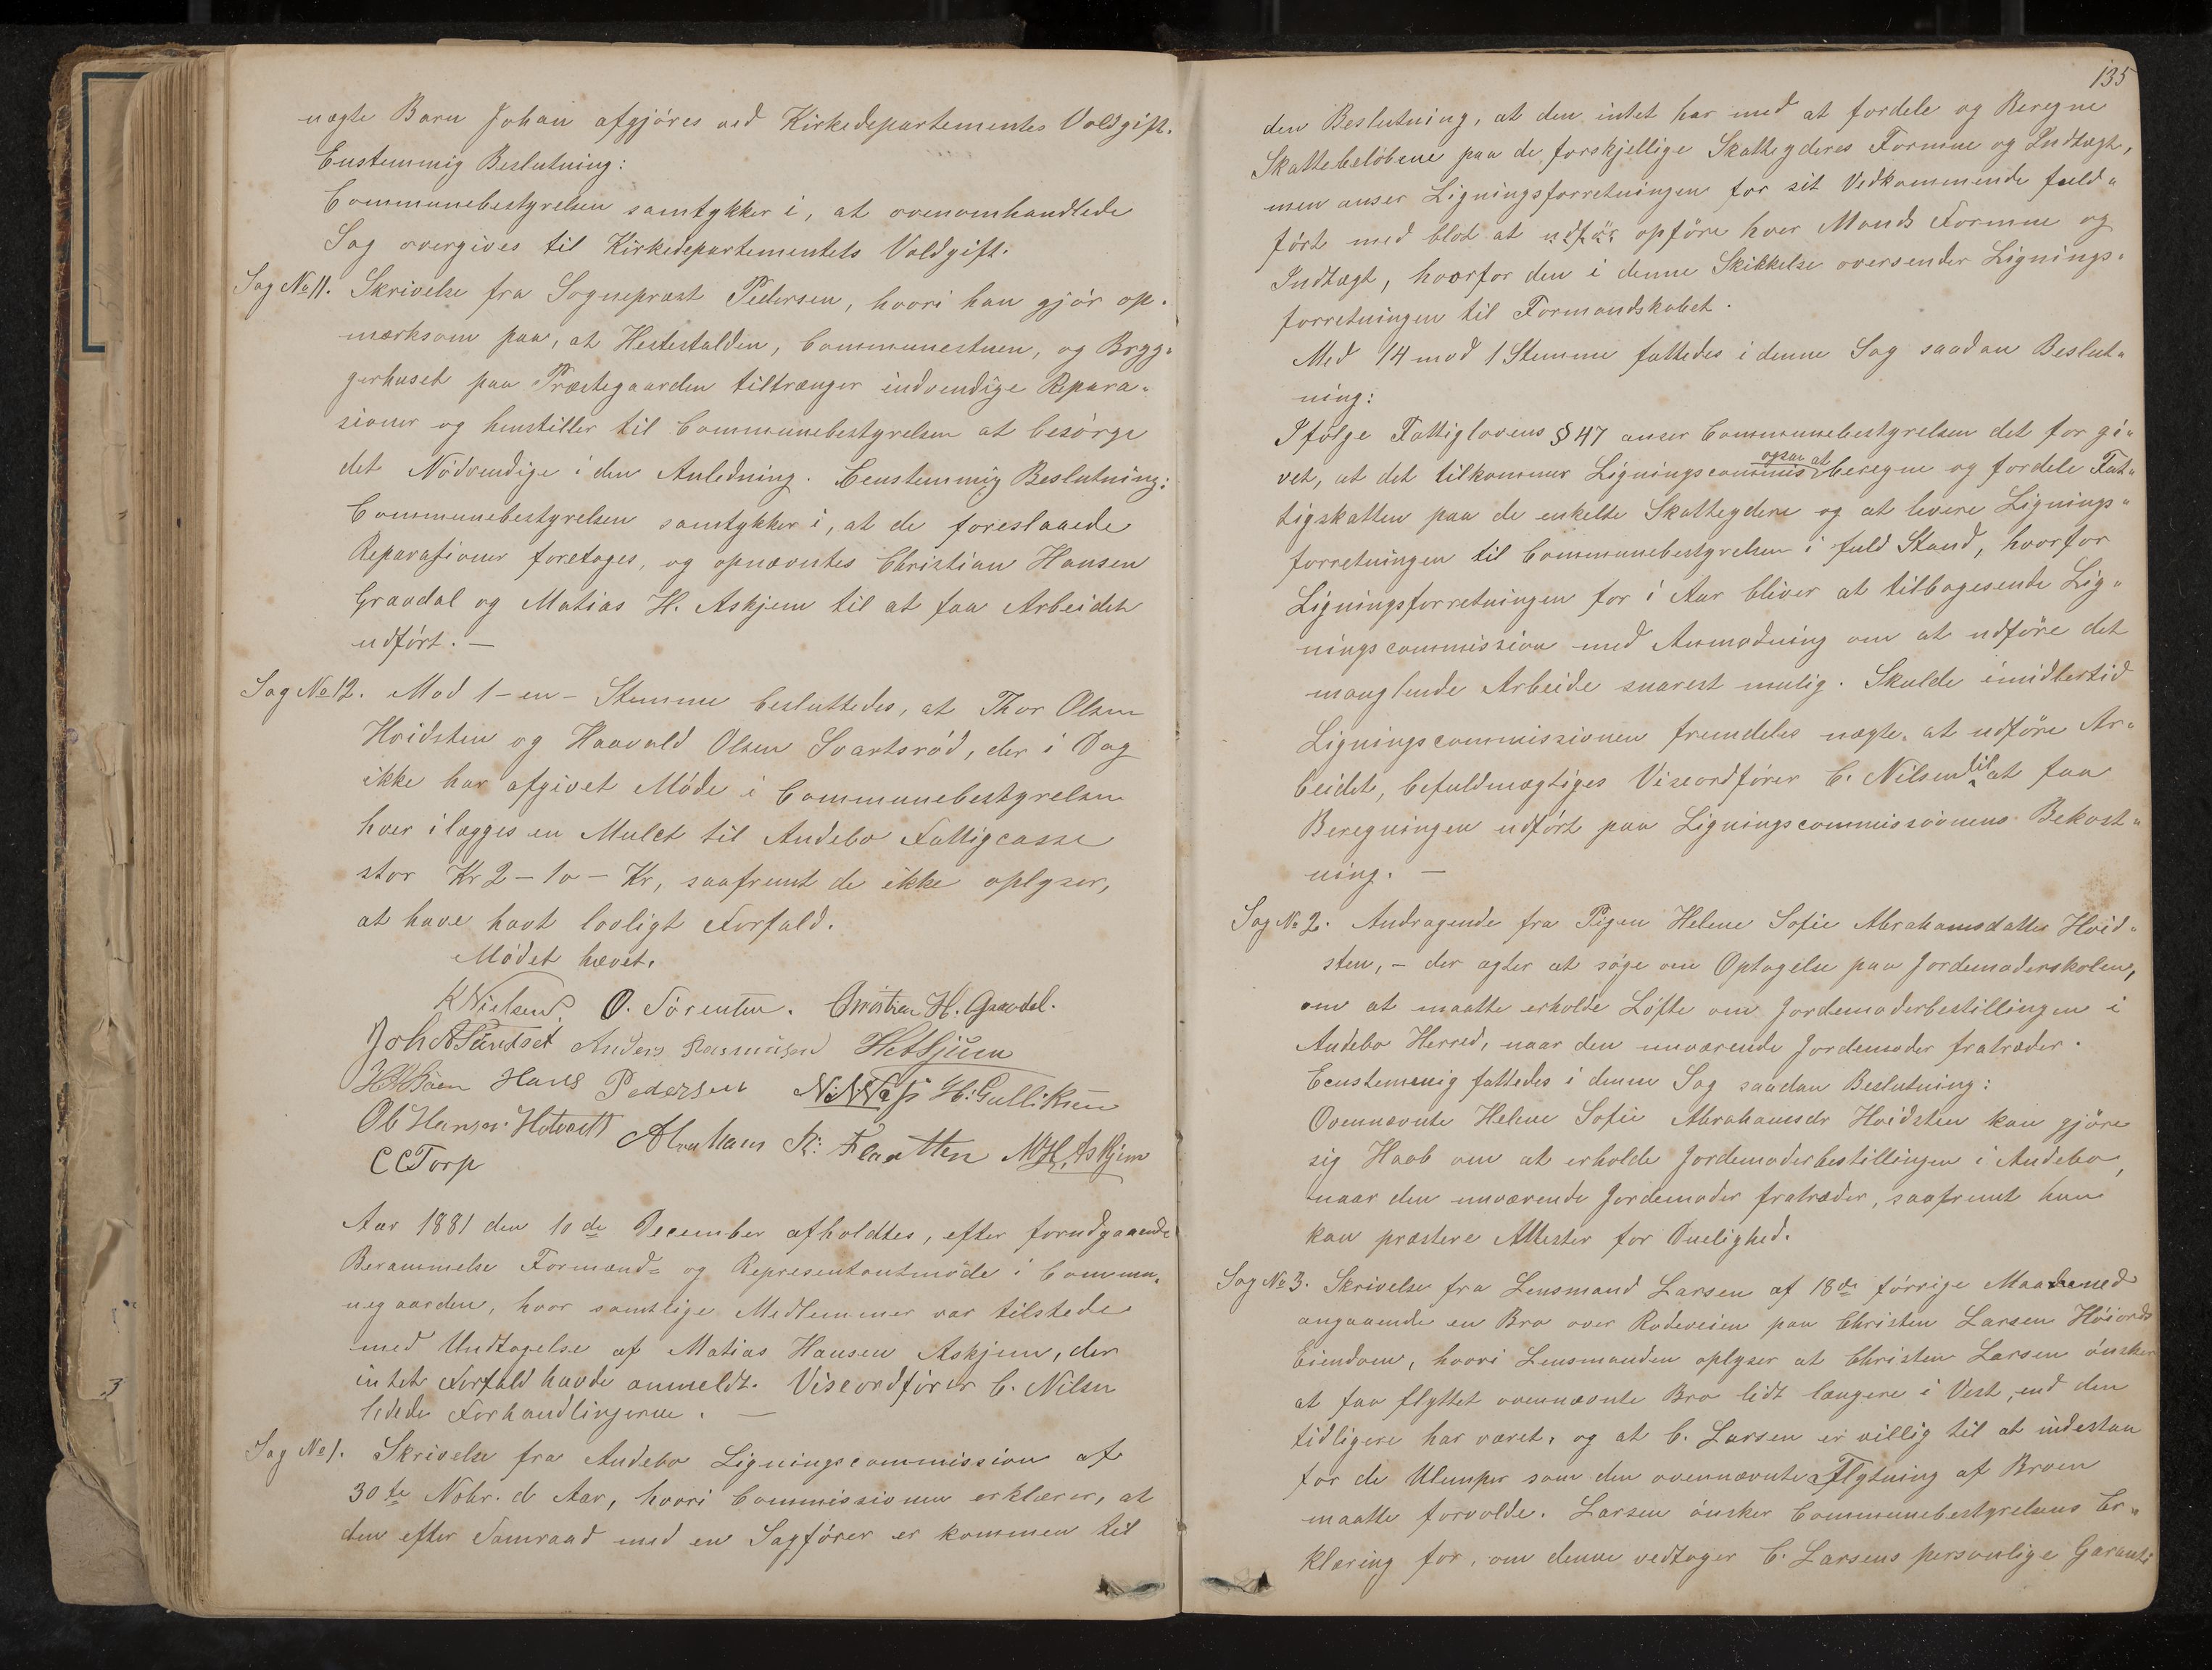 nægte Barn Johan afgjöres ved Kirkedepartementes Voldgift.
Enstemmig Beslutning:
Communebestyrelsen samtykker i, at ovenomhandlede
Sag overgives til Kirkedepartementets Voldgift.
Sag No 11. Skrivelse fra Sognepræst Pedersen, hvori han gjör op-
mærksom paa, at Hestestalden, Communestuen, og Bryg-
gerhuset paa Præstegaarden tiltrænger indvendige Repara-
sioner og henstiller til Communebestyrelsen at besörge
det Nödvendige i den Anledning. Eenstemmig Beslutning:
Communebestyrelsen samtykker i, at de foreslaaede
Reparasioner foretages, og opnævntes Christian Hansen
Gravdal og Matias H. Askjem til at faa Arbeidet
udfört. —
Sag No 12. Mod 1 - en - Stemme besluttedes, at Thor Olsen
Hvidsten og Haavald Olsen Svartsröd, der i Dag
ikke har afgivet Möde i Communebestyrelsen
hver ilægges en Mulct til Andebo Fattigcasse
stor Kr 2 - to - Kr, saafremt de ikke oplyser,
at have havt lovligt Forfald.
Mödet hævet.
K Nielsen. O. Sörensen. Christian H. Gravdal.
Joh A Sundset Anders Rasmusen H Askjem
Hans Pedersen H. Gulliksen
Ol Hansen Hotvedt Abraham K: Flaatten M H. Askjem
C C Torp
Aar 1881 den 10de December afholdtes, efter forudgaaende
Berammelse Formænd- og Representantmöde i Commu-
negaarden, hvor samtlige Medlemmer var tilstede
med Undtagelse af Matias Hansen Askjem, der
intet Forfald havde anmeldt. Viseordförer C. Nilsen
ledede Forhandlingerne. —
Sag No 1. Skrivelse fra Andebo Ligningscommission af
30te Novbr. d Aar, hvori Commissionen erklærer, at
den efter Samraad med en Sagförer er kommen til
135
den Beslutning, at den intet har med at fordele og Beregne
Skattebelöbene paa de forskjellige Skatteyderes Formue og Indtægt,
men anser Ligningsforretningen for sit Vedkommende fuld-
fört med blot at udför opföre hver Mands Formue og
Indtægt, hvorfor den i denne Skikkelse oversender Lignings-
forretningen til Formandskabet.
Med 14 mod 1 Stemme fattedes i denne Sag saadan Beslut-
ning:
Ifölge Fattiglovens § 47 anser Communebestyrelsen det for gi-
vet, at det tilkommer Ligningscommis ogsaa at beregne og fordele Fat-
tigskatten paa de enkelte Skatteydere og at levere Lignings-
forretningen til Communebestyrelsen i fuld Stand, hvorfor
Ligningsforretningen for i Aar bliver at tilbagesende Lig-
ningscommission med Anmodning om at udföre det
manglende Arbeide snarest mulig. Skulde imidlertid
Ligningscommissionen fremdeles nægte at udföre Ar-
beidet, befuldmægtiges Viseordförer C. Nilsen til at faa
Beregningen udfört paa Ligningscommissionens Bekost-
ning. —
Sag No 2. Andragende fra Pigen Helene Sofie Abrahamsdatter Hvid-
sten, - der agter at söge om Optagelse paa Jordemoderskolen,
om at maatte erholde Löfte om Jordemoderbestillingen i
Andebo Herred, naar den nuværende Jordemoder fratræder.
Eenstemmig fattedes i denne Sag saadan Beslutning:
Ovennævnte Helene Sofie Abrahamsdr Hvidsten kan gjöre
sig Haab om at erholde Jordemoderbestillingen i Andebo,
naar den nuværende Jordemoder fratræder, saafremt hun
kan præstere Attester for Duelighed.
Sag No 3. Skrivelse fra Lensmand Larsen af 18de förrige Maaned
angaaende en Bro over Rodeveien paa Christen Larsen Höiords
Eiendom, hvori Lensmanden oplyser at Christen Larsen önsker
at faa flyttet ovennævnte Bro lidt længere i Vest, end den
tidligere har været, og at C. Larsen er villig til at indestaa
for de Ulemper som den ovennævnte Flytning af Broen
maatte forvolde. Larsen önsker Communebestyrelsens Er-
klæring for, om denne vedtager C. Larsens personlige Garanti